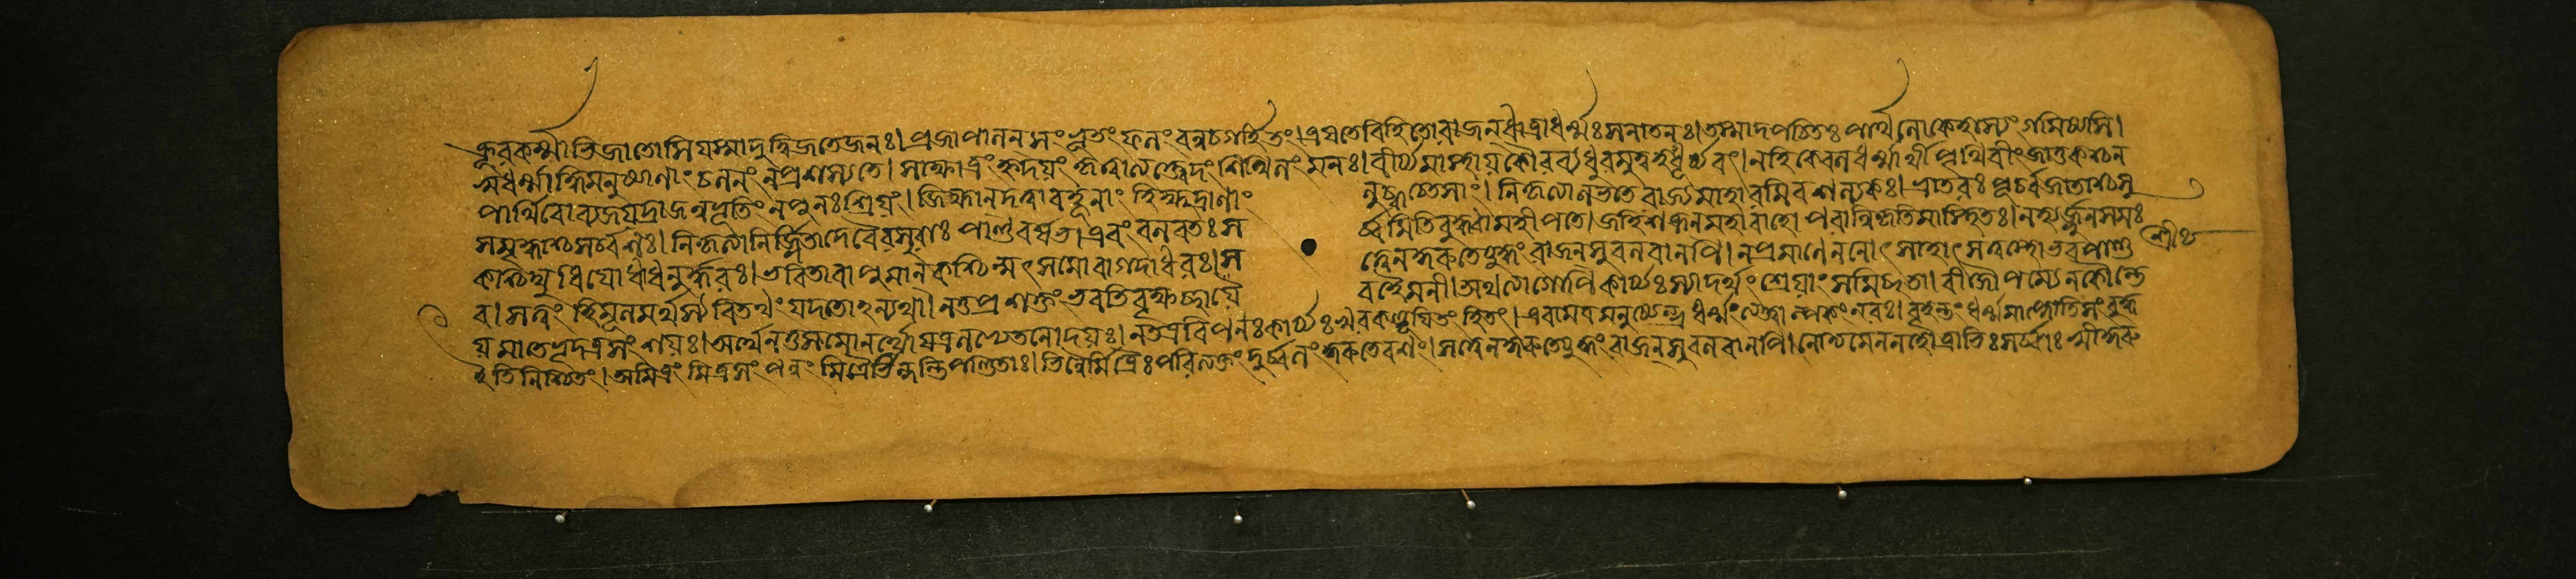 ক্রূরকর্ম্মাভিজাতোসি যস্মাদুদ্বিজতে জনঃ। প্রজাপালনসংভূতং ফলং তব ন গর্হিতং। এষ তে বিহিতো রাজন্ ধাত্রা ধর্ম্মঃ সনাতনঃ। তস্মাদপচিতঃ পার্থ লোকে হাস্যং গমিষ্যসি।
স্বধর্ম্মাদ্ধি মনুষ্যাণাং চলনং ন প্রশস্যতে। স ক্ষাত্রং হৃদয়ং কৃত্বা ত্যক্ত্বেদং শিথিলং মনঃ। বীর্য্যমাস্থায় কৌরব্য ধুরমুদ্বহ ধূর্য্যবৎ। ন হি কেবলধর্ম্মার্থী পৃথিবীং জাতু কশ্চন
পার্থিবো ব্যজয়দ্রাজন্ন ভূতিং ন পুনঃ শ্রিয়ং। জিহ্বান্ দত্বা বহূনাং হি ক্ষুদ্রাণাং লুব্ধচেতসাং। নিকৃত্যা লভতে রাজ্যমাহারমিব শল্যকঃ। ভ্রাতরঃ পূর্ব্বজাতাশ্চ সু
সমৃদ্ধাশ্চ সর্ব্বশঃ। নিকৃত্যা নির্জ্জিতা দেবৈরসুরাঃ পাণ্ডবর্ষভ। এবং বলবতঃ সর্ব্বমিতি বুদ্ধ্বা মহীপতে। জহি শত্রূন্ মহাবাহো পরান্নিকৃতিমাস্থিতঃ। ন হ্যর্জ্জুনসমঃ
কশ্চিদ্যুধি যোদ্ধা ধনুর্দ্ধরঃ। ভবিতা বা পুমান্ কশ্চিন্মৎসমো বা গদাধরঃ। সত্ত্বেন কুরুতে যুদ্ধং রাজন্ সুবলবানপি। ন প্রমাণেন নোৎসাহাৎ সত্বস্থো ভব পাণ্ড
ব। সত্ত্বং হি মূলমর্থস্য বিতথং যদতোঽন্যথা। ন তু প্রশক্তং ভবতি বৃক্ষচ্ছায়ে বহৈমনী। অর্থত্যাগোপি কার্য্যঃ স্যাদর্থং শ্রেয়াংসমিচ্ছতা। বীজৌপম্যেন কৌন্তে
য় মা তে ভূদত্র সংশয়ঃ। অর্থেন তু সমোনর্থো যত্র লভ্যেত নোদয়ঃ। ন তত্র বিপনঃ কার্য্যঃ খরকণ্ডূয়িতং হি তৎ। এবমেব মনুষ্যেন্দ্র ধর্ম্মং ত্যক্ত্বাল্পকং নরঃ। বৃহন্তং ধর্ম্মমাপ্নোতি স বুদ্ধ
ইতি নিশ্চিতং। অমিত্রং মিত্রসংপন্নং মিত্রৈর্ভিন্দন্তি পণ্ডিতাঃ। ভিন্নৈর্মিত্রৈঃ পরিত্যক্তং দুর্ব্বলং কুরুতে বশং। সত্ত্বেন কুরুতে যুদ্ধং রাজন্ সুবলবানপি। নোদ্যমেন ন হোত্রাভিঃ সর্ব্বাঃ স্বীকুরু